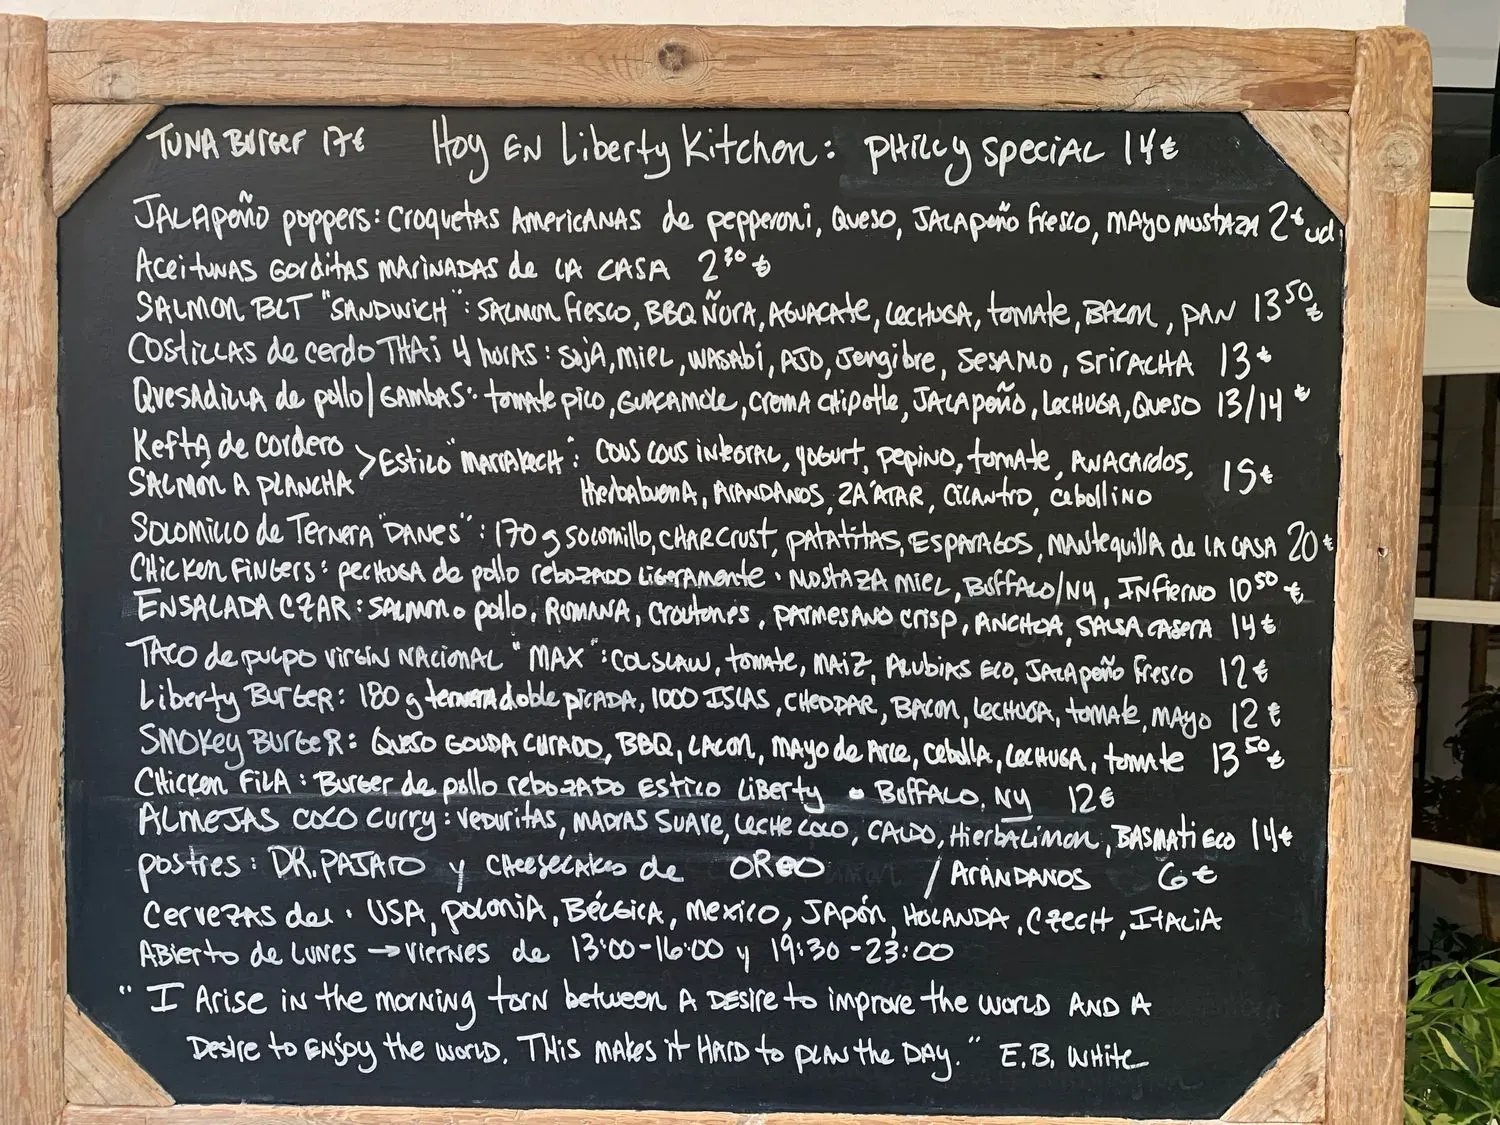 TUNA BURGER 17€ Hoy EN Liberty Kitchen: PHILLY SPECIAL 14€
JALAPEÑO POPPERS: CROQUETAS AMERICANAS de pepperoni, QUESO, JALAPEÑO FRESCO, MAYO MUSTAZA 2€ ud.
ACEITUNAS GORDITAS MARINADAS de LA CASA 2 30 €
SALMON BLT "SANDWICH": SALMON FRESCO, BBQ ÑORA, AGUACATE, LECHUGA, TOMATE, BACON, PAN 13 50 €
COSTILLAS de cerdo THAI 4 HORAS: SOJA, MIEL, WASABI, AJO, JENGIBRE, SESAMO, SRIRACHA 13€
QUESADILLA de pollo/GAMBAS: tomate pico, GUACAMOLE, CREMA CHIPOTLE, JALAPEÑO, LECHUGA, QUESO 13/14 €
Kefta de cordero
SALMÓN A PLANCHA > Estilo "MARRAKECH": COUS COUS INTEGRAL, YOGURT, PEPINO, TOMATE, ANACARDOS, 15€
Hierbabuena, ARANDANOS, ZA'ATAR, CILANTRO, cebollino
SOLOMILLO de TERNERA "DANES": 170 g SOLOMILLO, CHARCRUST, PATATITAS, ESPARAGOS, MANTEQUILLA de LA CASA 20€
CHICKEN FINGERS: PECHUGA de pollo REBOZADO LIGERAMENTE · MOSTAZA MIEL, BUFFALO/NY, INFIERNO 10 50 €
ENSALADA CZAR: SALMON o pollo, ROMANA, CROUTONES, PARMESANO CRISP, ANCHOA, SALSA CASERA 14€
TACO de pulpo VIRGIN NACIONAL "MAX": COLSLAW, TOMATE, MAIZ, ALUBIAS ECO, JALAPEÑO FRESCO 12€
Liberty BURGER: 180 g ternera doble PICADA, 1000 ISLAS, CHEDDAR, BACON, LECHUGA, TOMATE, MAYO 12€
SMOKEY BURGER: QUESO GOUDA CURADO, BBQ, LACON, MAYO de ARCE, cebolla, LECHUGA, tomate 13 50 €
CHICKEN FILA: BURGER de pollo REBOZADO ESTILO LIBERTY · BUFFALO, NY 12€
ALMEJAS COCO CURRY: VEDURITAS, MADRAS SUAVE, LECHE COCO, CALDO, HierbaLimon, BASMATI ECO 14€
postres: DR. PAJARO y CHEESECAKES de OREO / ARANDANOS 6€
Cervezas de: USA, POLONIA, BÉLGICA, MEXICO, JAPÓN, HOLANDA, CZECH, ITALIA
ABIERTO de LUNES → VIERNES de 13:00-16:00 y 19:30-23:00
"I Arise in the morning torn between A DESIRE to improve the world AND A
Desire to ENJOY the WORLD. THIS MAKES it HARD to PLAN the DAY." E.B. WHITE